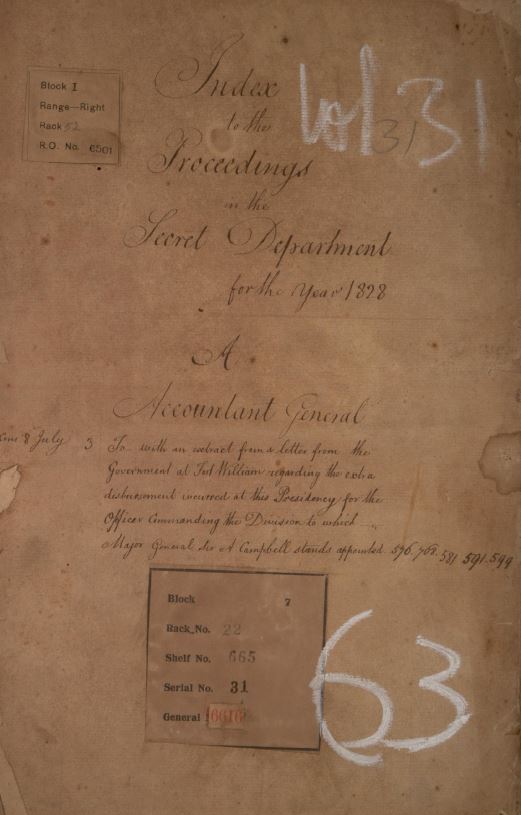 Block I
Range—Right
Rack 52
R.O. No. 6501
Vol 31
31
Index
to the
Proceedings
in the
Secret Department
for the Year 1828
A
Accountant General
8 July 3 To with an extract from a letter from the
Government at Fort William regarding the extra
disbursement incurred at this Presidency for the
Officer Commanding the Division to which
Major General Sir A Campbell stands appointed. 576. 581 591. 599
Block 7
Rack No. 22
Shelf No. 665
Serial No. 31
General 6616
63